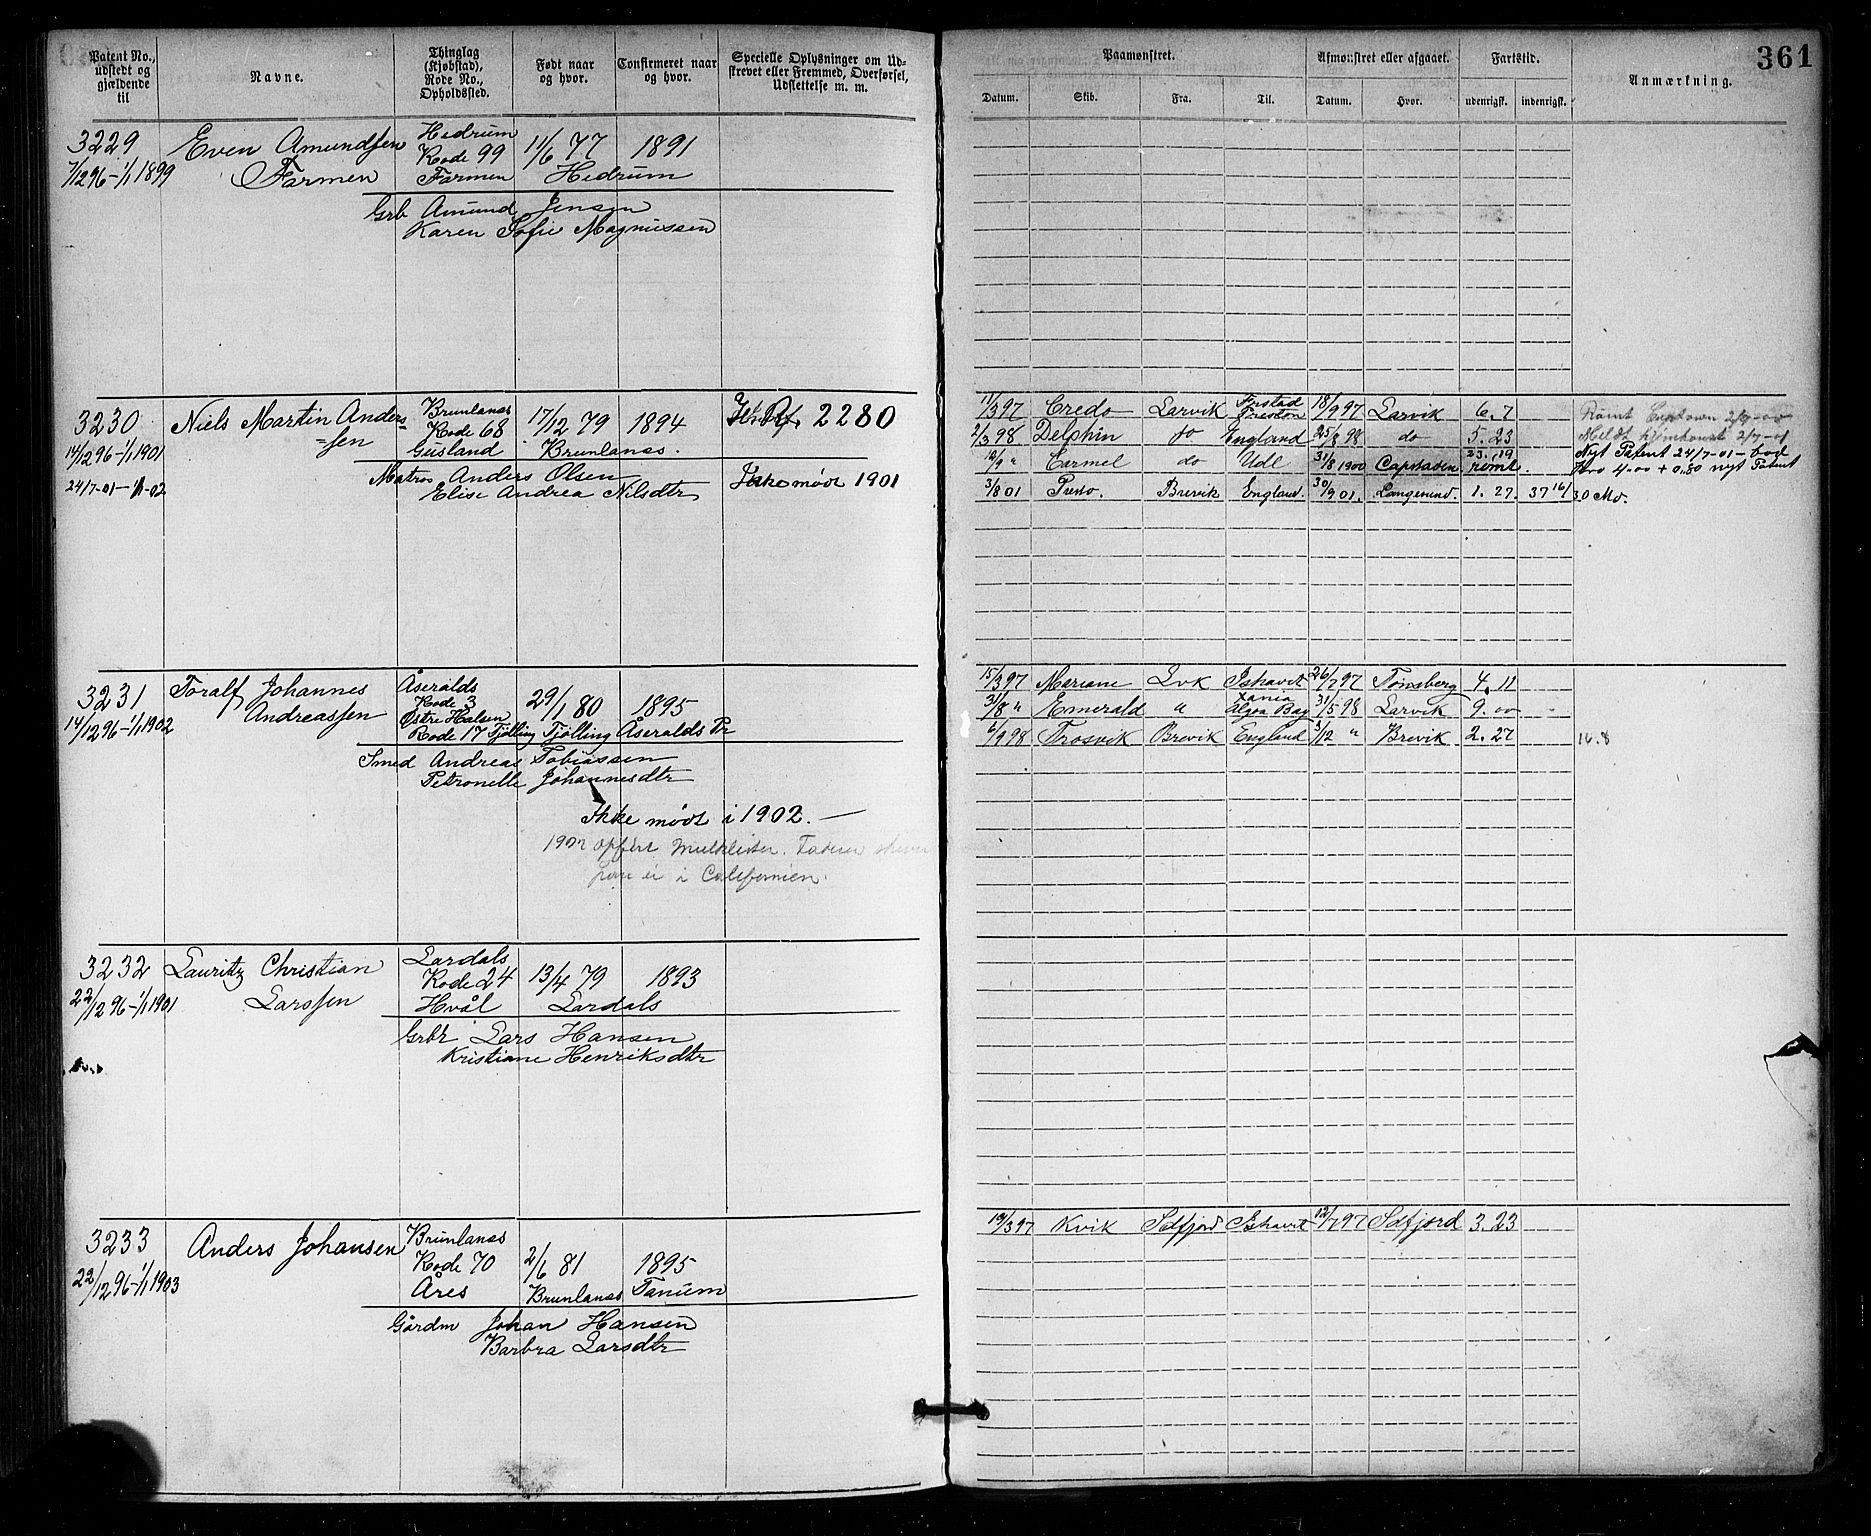 361
Patent No., udstedt og gjældende til
Navne.
Thinglag (Kjøbstad), Rode No., Opholdssted.
Født naar og hvor.
Confirmeret naar og hvor.
Specielle Oplysninger om Udskrevet eller Fremmed, Overførsel, Udslettelse m. m.
Paamønstret.
Afmønstret eller afgaaet.
Fartstid.
Anmærkning.
Datum. Skib. Fra. Til. Datum. Hvor. udenrigsk. indenrigsk.
3229 Even Amundsen Hedrum 11/6 77 1891
7/12 96 - 1/1 1899 Farmen Rode 99 Farmen Hedrum
Grb Amund Jensen
Karen Sofie Magnussen
3230 Niels Martin Anders= Brunlanæs 17/12 79 1894 2280
14/12 96 - 1/1 1901 =sen Rode 68 Gusland Brunlanæs.
24/7-01 - 1/1-02
Matros Anders Olsen
Elise Andrea Nilsdtr
Ikke mødt 1901
11/3 97 Credo Larvik Frstad Preston 18/9 97 Larvik 6. 7
2/3 98 Delphin do England 25/8 98 do 5. 23
12/9 " Carmel do Udl 31/8 1900 Capstaden 23. 19 rømt.
3/8 01 Presto. Brevik England. 30/9 01. Langesund. 1. 27. 37 16/30 Mo.
Rømt Captown 2/9-00
Meldt hjemkomst 2/7-01
Nyt Patent 24/7-01 - bod
4.00 + 0.80 nyt Patent
3231 Toralf Johannes Andreassen Åseralds Rode 3 29/1 80 1895
14/12 96 - 1/1 1902 Østre Halsen
Rode 17 Tjølling Tjølling Åseralds Pr
Smed Andreas Tobiassen
Petronelle Johannesdtr
Ikke mødt i 1902. —
i Californien.
15/3 97 Mariane Lvk Ishavet 26/7 97 Tønsberg 4. 11
31/8 " Emerald " Xania Algoa Bay 31/5 98 Larvik 9. 00
6/9 98 Frosvik Brevik England 2/12 " Brevik 2. 27 16.8
3232 Lauritz Christian Larssen Lardals 13/4 79 1893
22/12 96 - 1/1 1901 Rode 24 Hvål Lardals
Grbr Lars Hansen
Kristiane Henriksdtr
3233 Anders Johansen Brunlanæs 2/6 81 1895
22/12 96 - 1/1 1903 Rode 70 Åres Brunlanæs Tanum
Gårdm Johan Hansen
Barbra Larsdtr
19/3 97 Kvik Sdfjord Ishavet 12/7 97 Sdfjord 3. 23